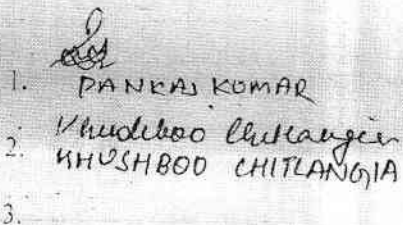 1. PANKAJ KUMAR
Khushboo Chitlangia
2. KHUSHBOO CHITLANGIA
3.